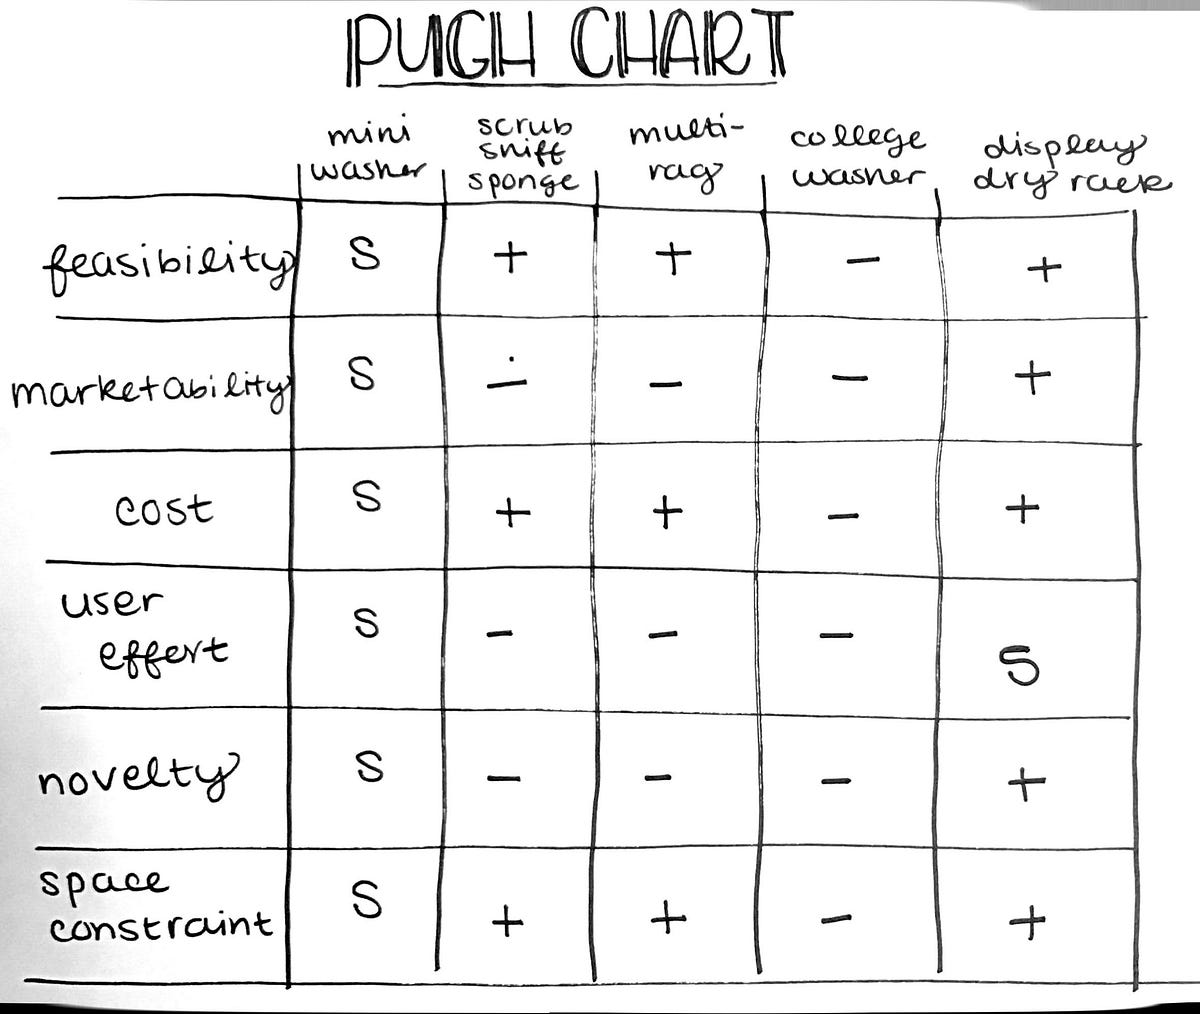 PUGH CHART
mini washer
scrub sniff sponge
multi-rag
college washer
display dry rack
feasibility S + + - +
marketability S ∸ - - +
cost S + + - +
user effort S - - - S
novelty S - - - +
space constraint S + + - +